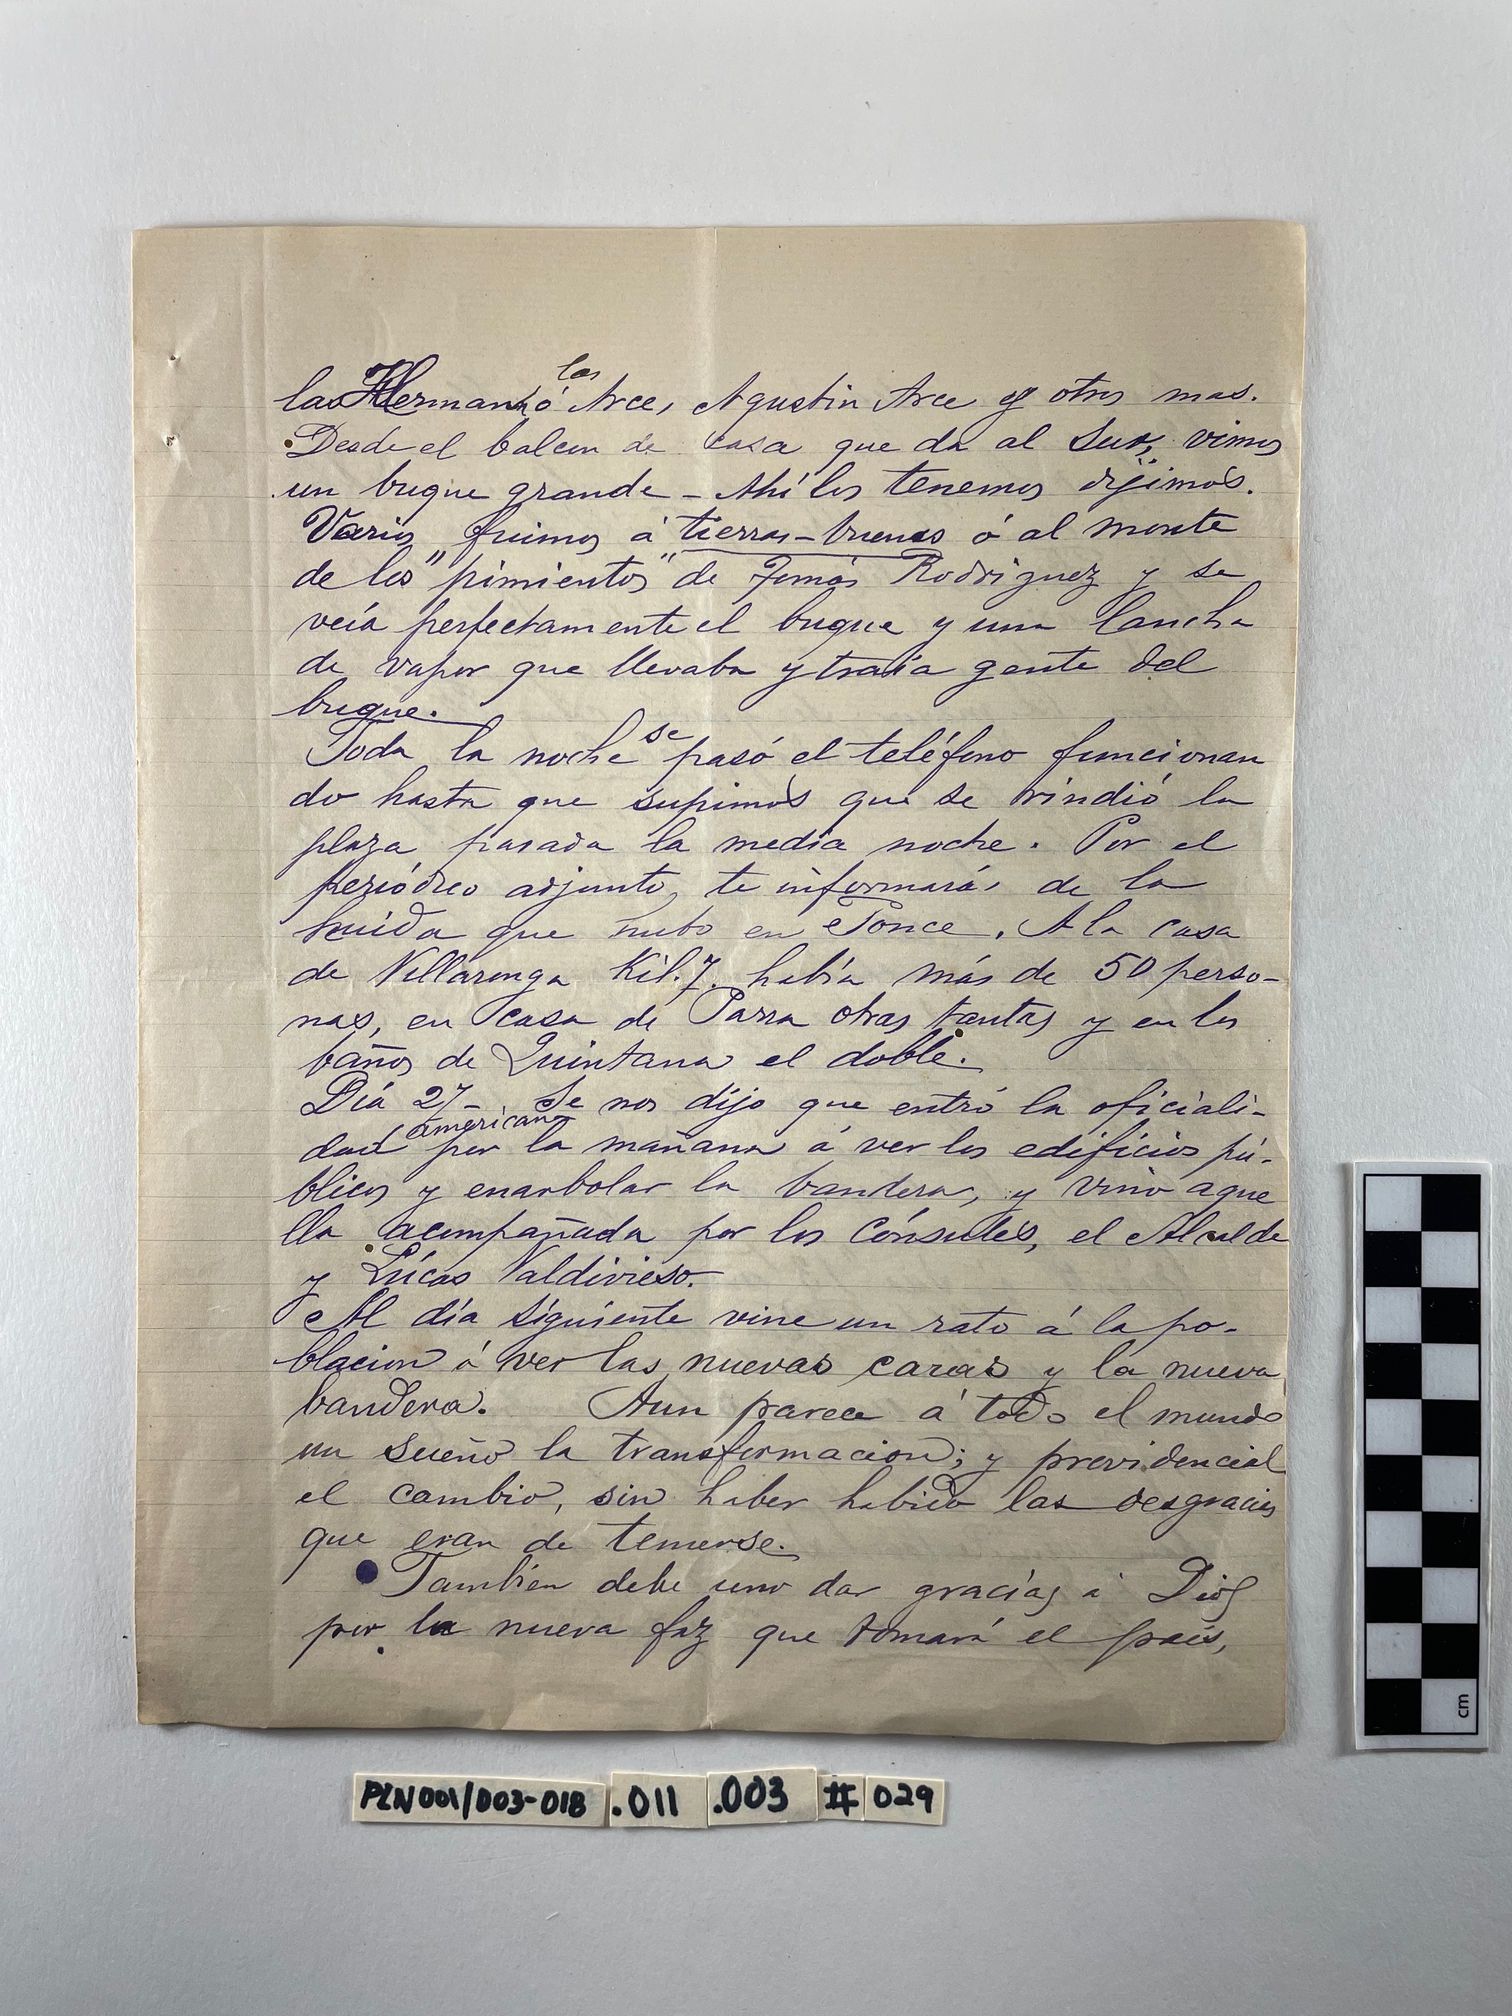 las Hermanas ó las Arce, Agustin Arce y otros mas.
Desde el balcon de casa que da al Sur, vimos
un buque grande - Ahí los tenemos dijimos.
Varios fuimos á tierras-buenas ó al monte
de los "pimientos" de Tomás Rodriguez y se
veía perfectamente el buque y una lancha
de vapor que llevaba y traía gente del
buque.
Toda la noche se pasó el teléfono funcionan
do hasta que supimos que se rindió la
plaza pasada la media noche. Por el
periódico adjunto, te informarás de la
huida que hubo en Ponce. A la casa
de Villaronga Kil. 7. había más de 50 perso-
nas, en casa de Parra otras tantas y en los
baños de Quintana el doble.
Día 27 - Se nos dijo que entró la oficiali-
dad americana por la mañana á ver los edificios pú-
blicos y enarbolar la bandera, y vino aque
lla acompañada por los Cónsules, el Alcalde
y Lúcas Valdivieso.
Al día siguiente vine un rato á la po-
blacion á ver las nuevas caras y la nueva
bandera. Aun parece á todo el mundo
un sueño la transformacion; y providencial
el cambio, sin haber habido las desgracias
que eran de temerse.
Tambien debe uno dar gracias á Dios
por la nueva faz que tomará el país,
PLN001/003-018 .011 .003 # 029
cm